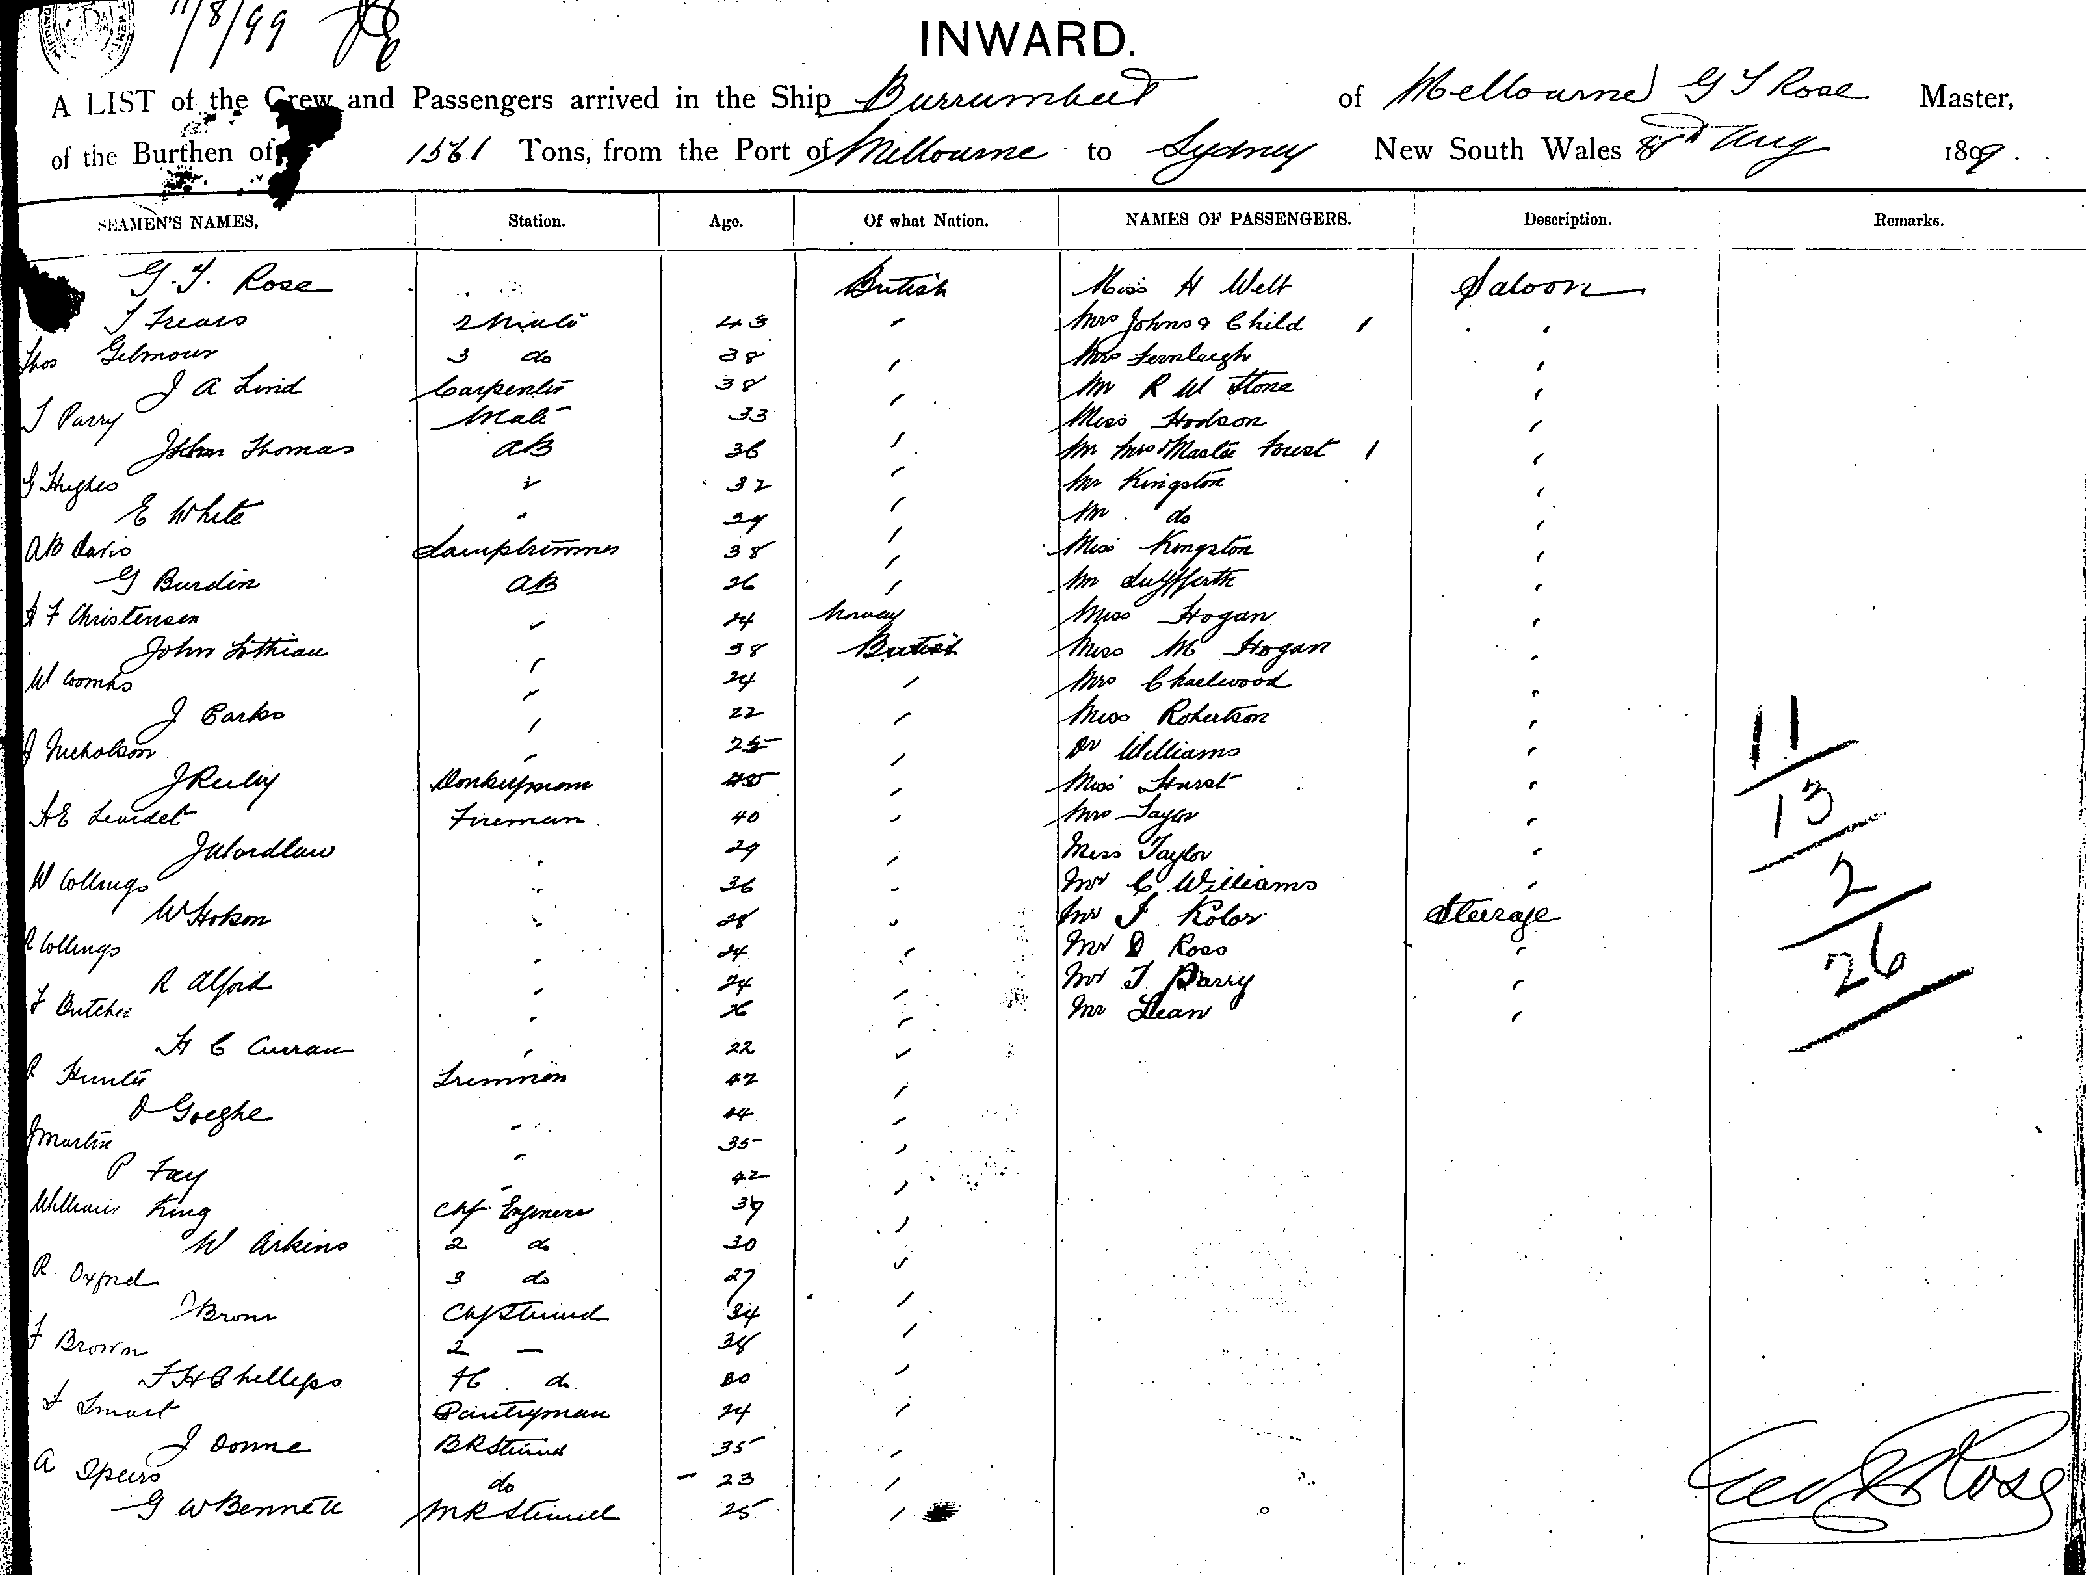 11/8/99
INWARD.
A LIST of the Crew and Passengers arrived in the Ship Burrumbeet of Melbourne G T Rose Master,
of the Burthen of 1561 Tons, from the Port of Melbourne to Sydney New South Wales Aug 1899.
SEAMEN'S NAMES, Station. Age. Of what Nation. NAMES OF PASSENGERS. Description. Remarks.
G. T. Rose British Miss H Welt Saloon
T Frears 2 Mate 43 " Mrs Johns & Child 1 "
Thos Gilmour 3 do 38 " Mrs Fernleigh "
J A Lind Carpenter 38 " Mr R W Stone "
T Parry Mate 33 Miss Hodson "
John Thomas AB 36 " Mr Mrs & Master Forest 1 "
G Hughes " 32 " Mr Kingston "
E White " 29 " Mr do "
AB Davis Lamptrimmer 38 " Miss Kingston "
G Burdin AB 26 " Mr "
H F Christensen " 24 Norway Miss Hogan "
John Lothian " 38 British Miss M Hogan "
W Coombs " 24 " Mrs Charlwood "
J Parks " 22 " Miss Robertson "
J Nicholson " 25 " Dr Williams "
J Reily Donkeyman 45 " Miss Hurst "
A E Fireman 40 " Mrs Taylor "
J Wordlaw " 29 " Miss Taylor "
W Collings " 36 " Mr C Williams "
W Hobson " 28 " Mr J Rolor Steerage
R Collings " 24 " Mr D Ross "
R Alford " 24 " Mr T Parry "
F Butcher " 26 " Mr Dean "
H C Curran " 22 "
R Hunter Trimmer 42 "
D Goeghe " 44 "
J Martin " 35 "
P Fay " 42 "
William King Chf Engineer 39 "
W Arkins 2 do 30 "
R Oxford 3 do 27 "
J Brown Chf Steward 34 "
F Brown 2 — 38 "
F H Phillips do 30 "
F Smart Pantryman 24 "
J Donne BR Steward 35 "
A Speirs do 23 "
G W Bennett MR Steward 25 "
11
13
2
26
Geo T Rose